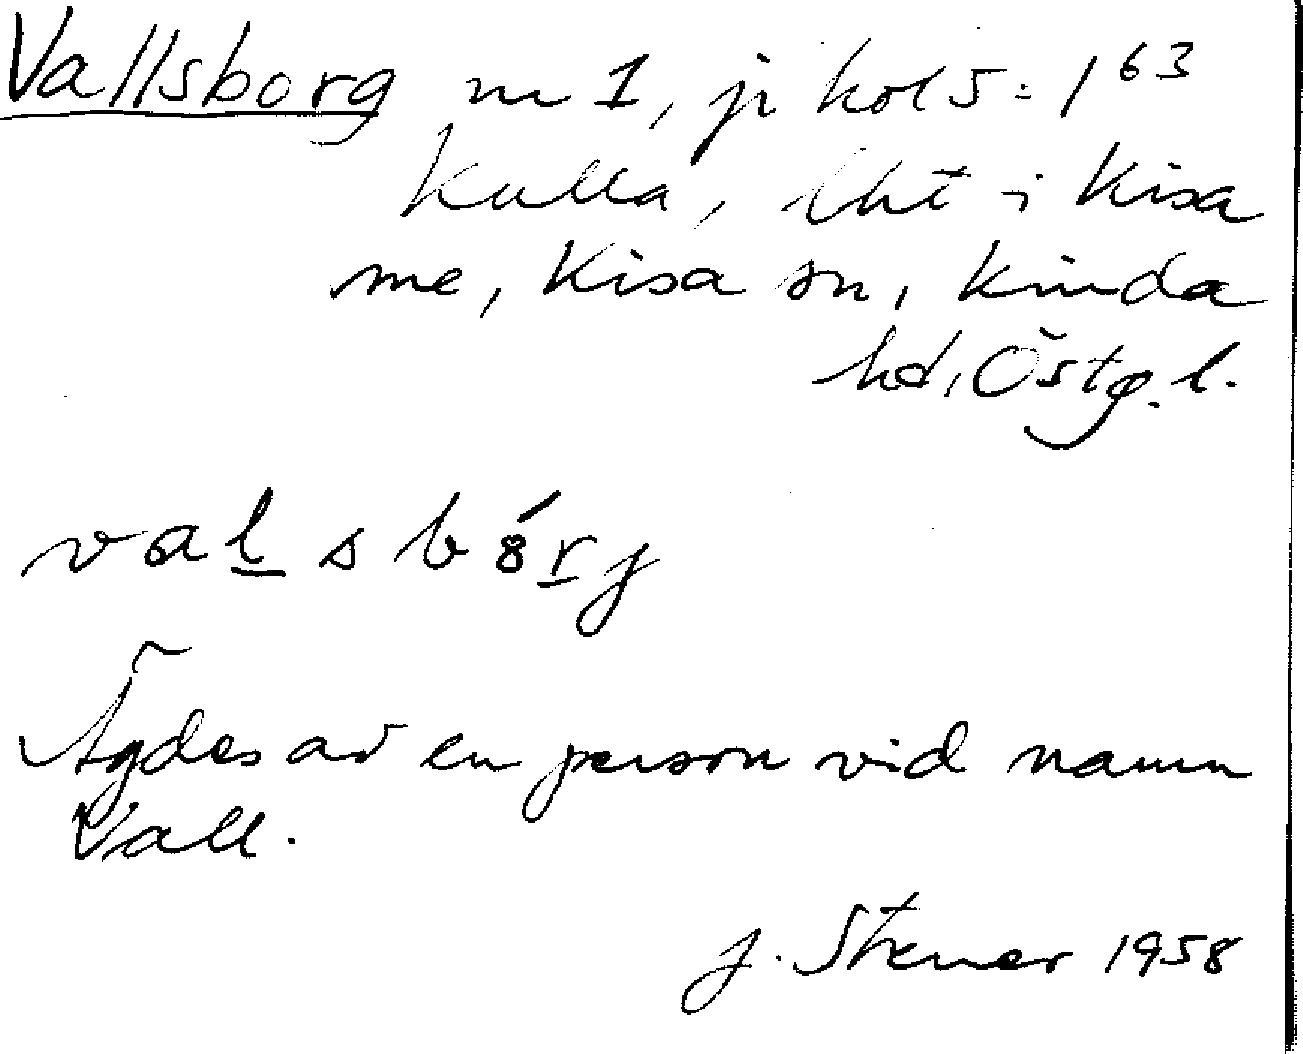 Vallsborg nr 1, jr kol 5 = 1⁶³
Kulla, lht i Kisa
me, Kisa sn, Kinda
hd, Östg. l.
val̲sb8́r̲j
Ägdes av en person vid namn
Vall.
J. Stener 1958